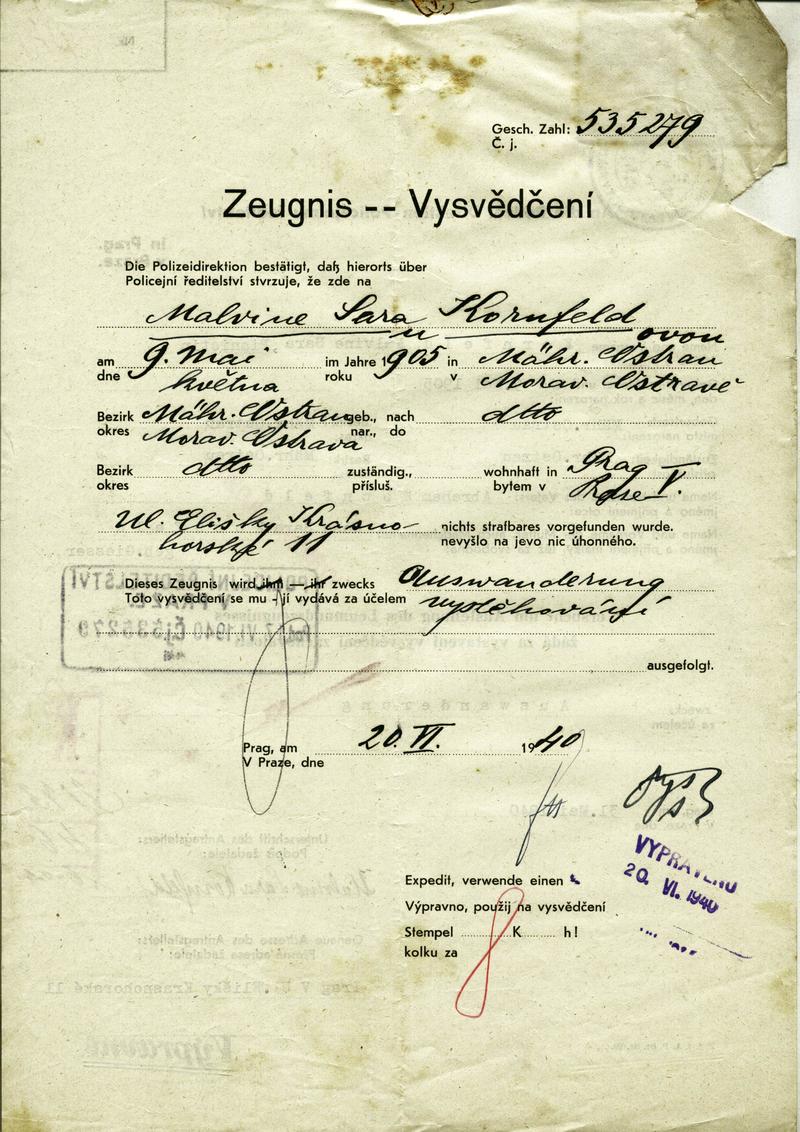 Gesch. Zahl: 535279
Č. j.
Zeugnis -- Vysvědčení
Die Polizeidirektion bestätigt, daß hierorts über
Policejní ředitelství stvrzuje, že zde na
Malvine Sara Kornfeld
u ovou
am 9. Mai im Jahre 1905 in Mähr. Ostrau
dne května roku v Morav. Ostravě
Bezirk Mähr. Ostrau geb., nach dtto
okres Morav. Ostrava nar., do
Bezirk dtto zuständig., wohnhaft in Prag V
okres přísluš. bytem v Praze V.
Ul. Elišky Krásno- nichts strafbares vorgefunden wurde.
horské 11 nevyšlo na jevo nic úhonného.
Dieses Zeugnis wird ihm — ihr zwecks Auswanderung
Toto vysvědčení se mu - jí vydává za účelem vystěhování
ŘEDITELSTVÍ
V PRAZE
17. VI. 1940 Čj. 535279
ausgefolgt.
Prag, am 20. VI. 1940
V Praze, dne
Expedit, verwende einen
Výpravno, použij na vysvědčení
Stempel K h!
kolku za
VYPRAVENO
20. VI. 1940